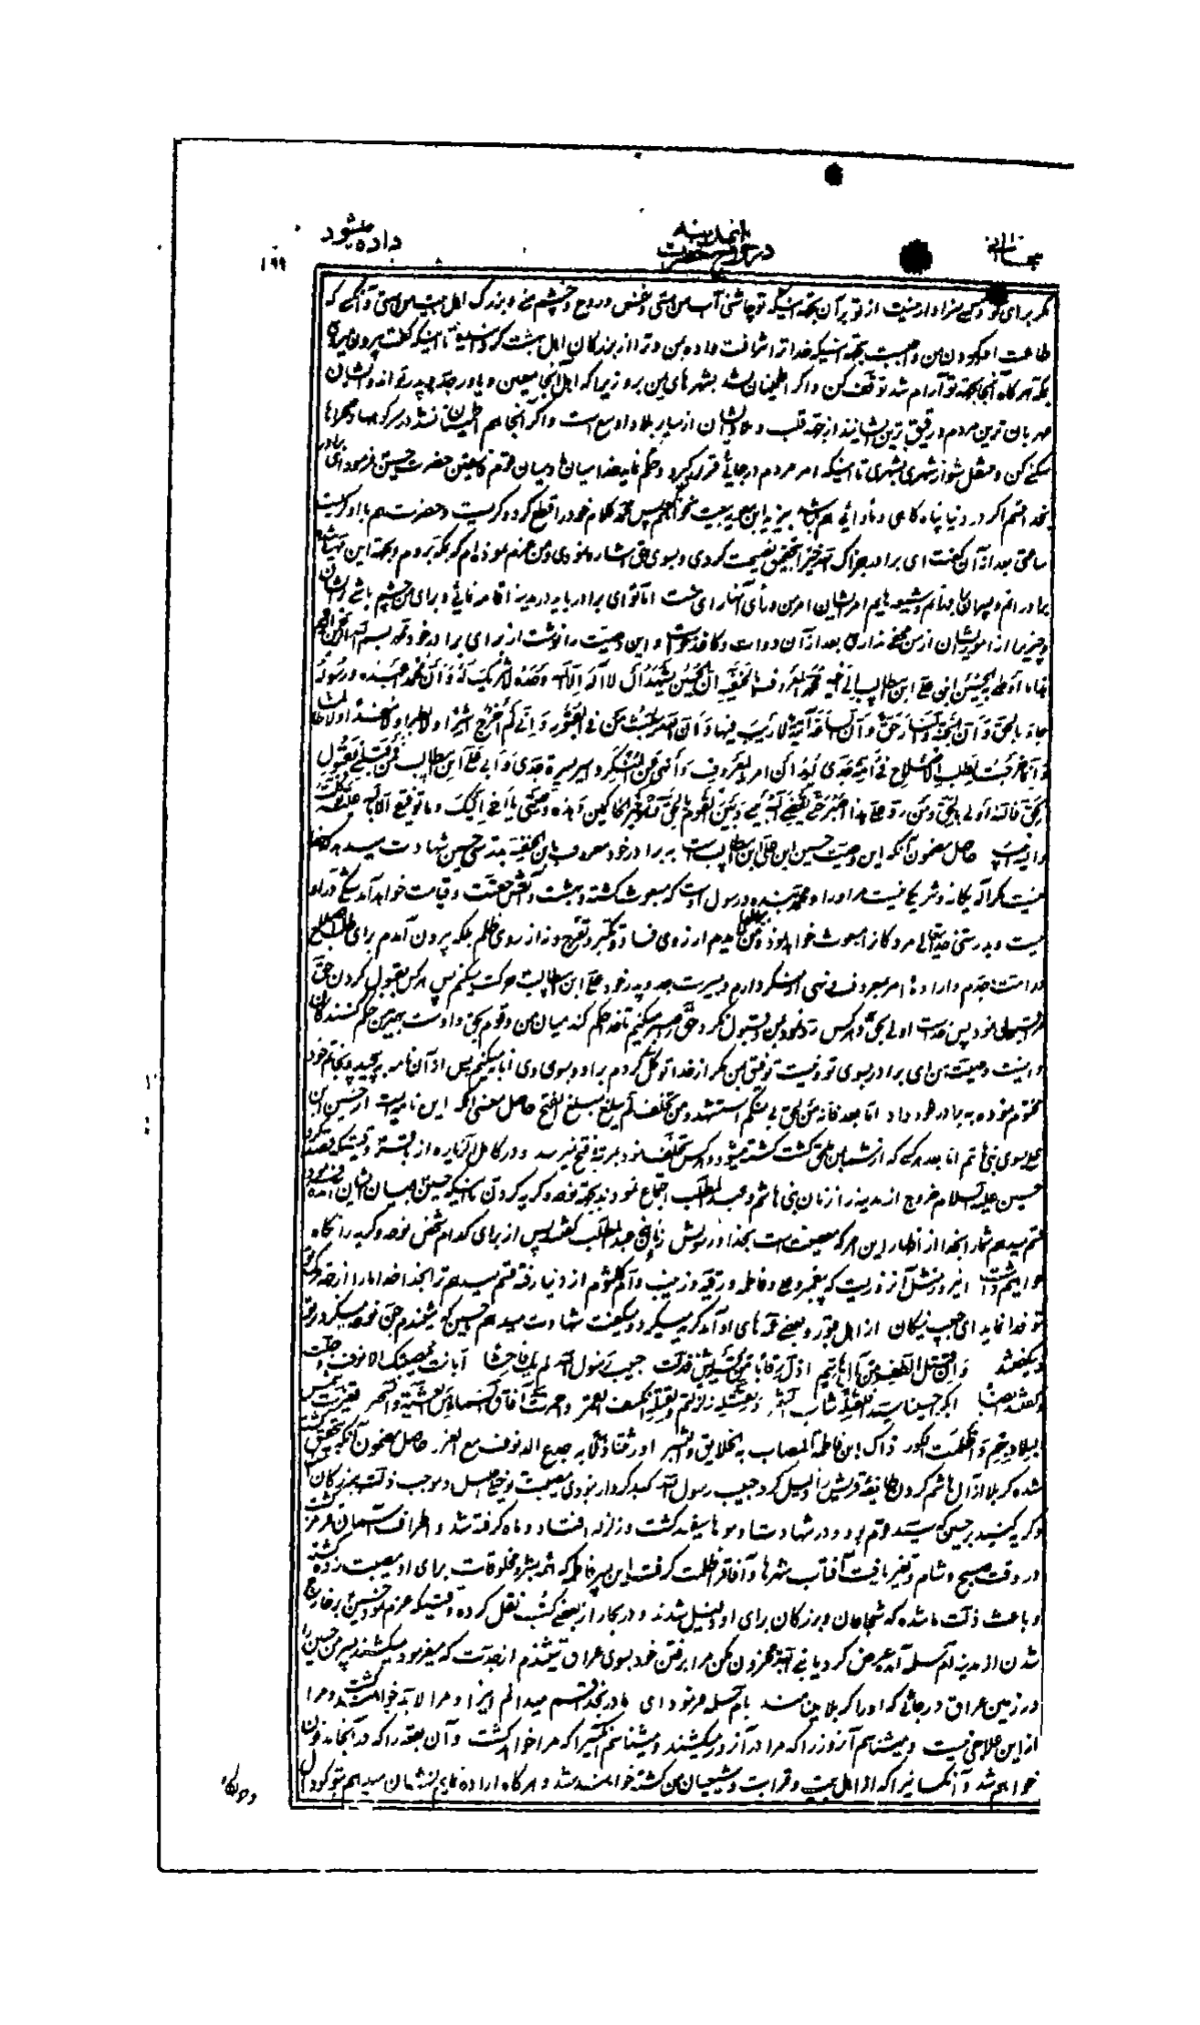 داده میشود
در خروج حضرت
از مدینه
۱۹۹
مگر برای تو و کسی سزاوار نیست از تو برآن بجهة اینکه تو چاشنی آب من هستی و نفس و روح و چشم من و بزرگ اهل بیت من هستی و آنکسی که
طاعت او بگردن من واجبست بجهة اینکه خدا ترا شرافت داده بمن و ترا از بزرگان اهل بهشت کرده
بمکه هرگاه آنجا بجهة تو آرام شد توقف کن و اگر اطمینان نشد بشهرهای یمن برو زیرا که اهل آنجا معین و یاور جد و پدر تواند و ایشان
مهربان ترین مردم و رقیق ترین ایشانند از جهة قلب و بلاد ایشان از سایر بلاد اوسع است و اگر آنجا هم اطمینان نشد در سر کوهها و صحراها
سکنی کن و منتقل شو از شهری بشهری تا اینکه امر مردم در جائی قرار گیرد و حکم نماید خدا میان ما و میان قوم فاسقین حضرت حسین فرمود ای برادر
بخدا قسم اگر در دنیا پناه گاهی و مأوائی هم نباشد بیزید ابن معویه بیعت نخواهم کرد پس محمد کلام خود را قطع کرده و گریست و حضرت هم با او گریست
ساعتی بعد از آن گفت ای برادر جزاک الله خیرا بتحقیق نصیحت کردی و بسوی حق اشاره نمودی و من عزم نموده ام که بمکه بروم و بجهة این
برادرانم و پسران برادرانم و شیعه هایم امر ایشان امر من و رأی آنها رأی منست اما تو ای برادر باید در مدینه اقامه نمائی و برای من چشم باشی بر ایشان
و چیزی را از امور ایشان از من مخفی نداری بعد از آن دوات و کاغذ خواست و این وصیت را نوشت از برای برادر خود محمد بسم الله الرحمن الرحیم
هذا ما اوصی به الحسین ابن علی ابن ابیطالب الی اخیه محمد المعروف بابن الحنفیه ان الحسین یشهد ان لا اله الا الله وحده لا شریک له و ان محمدا عبده و رسوله
جاء بالحق و ان الجنة و النار حق و ان الساعة آتیة لا ریب فیها و ان الله یبعث من فی القبور و انی لم اخرج اشرا و لا بطرا و لا مفسدا و لا ظالما
و انما خرجت لطلب الاصلاح فی امة جدی ارید ان امر بالمعروف و انهی عن المنکر و اسیر بسیرة جدی و ابی علی ابن ابیطالب فمن قبلنی بقبول
الحق فالله اولی بالحق و من رد علی هذا اصبر حتی یقضی الله بینی و بین القوم بالحق و هو خیر الحاکمین و هذه وصیتی یا اخی الیک و ما توفیقی الا بالله علیه توکلت
و الیه انیب حاصل مضمون آنکه این وصیت حسین ابن علی ابن ابیطالب است به برادر خود معروف بابن الحنفیه بدرستی حسین شهادت میدهد که خدا
نیست مگر اله یگانه و شریکی نیست مر او را و محمد بنده و رسول اوست که مبعوث گشته و بهشت و آتش حقست و قیامت خواهد آمد شکی در او
نیست و بدرستی خدایتعالی مردگان را مبعوث خواهد نمود و من
در امت جدم و اراده دارم امر بمعروف و نهی از منکر دارم و بسیرت جد و پدر خود علی ابن ابیطالب حرکت میکنم پس هر کس بقبول کردن حق
مرا قبول نمود پس خداست اولی بحق و هر کس رد نمود بمن و قبول نکرد حق صبر میکنم تا خدا حکم کند میان من و قوم بحق و اوست بهترین حکم کنندگان
و اینست وصیت من ای برادر بسوی تو و نیست توفیق من مگر از خدا توکل کردم بر او و بسوی وی انابه میکنم پس از آن نامه پیچید و بخاتم خود
مختوم نموده به برادر خود داد اما بعد فانه من لحق بی منکم استشهد و من تخلف لم یبلغ مبلغ الفتح حاصل معنی آنکه این نامه ایست از حسین ابن
علی بسوی بنی هاشم اما بعد هر کسی که از شما بمن ملحق گشت کشته میشود و هر کس تخلف نمود بمرتبه فتح نمیرسد و در کامل الزیاره از
حسین علیه السلام خروج از مدینه را زنان بنی هاشم و عبد المطلب اجتماع نمودند بجهة نوحه و گریه کردن تا اینکه حسین بمیان ایشان آمده فرمود
قسم میدهم شما را بخدا از اظهار این امر که معصیت است بخدا و رسولش زنان بنی عبد المطلب گفتند پس از برای کدام شخص نوحه و گریه را نگاه
خواهیم داشت امروز مثل آنروزیست که پیغمبر و علی و فاطمه و رقیه و زینب و ام کلثوم از دنیا رفتند قسم میدهیم ترا بخدا خدا ما را از جهة مرگ
تو فدا نماید ای حبیب نیکان از اهل قبور و بعضی عمه های او آمد گریه میکرد و میگفت شهادت میدهم یا حسین که شنیدم جن نوحه میکرد بر تو
و میگفتند و ان قتیل الطف من آل هاشم اذل رقابا من قریش فذلت حبیب رسول الله لم یک فاحشا ابانت مصیبتک الانوف و جلت
و گفتند ایضا ابکی حسینا سیدا و لقتله شاب الشعر و لقتله زلزلتم و لقتله انکسف القمر و احمرت آفاق السماء من العشیة و السحر
البلاد بهم و اظلمت الکور ذاک ابن فاطمة المصاب به الخلایق و البشر اورثتنا ذلا به جدع الانوف مع الغرر حاصل مضمون آنکه بتحقیق
شده کربلا از آل هاشم گردن طایفه قریش را ذلیل کرد حبیب رسول الله که بدکردار نبودی
و گریه کنید بر حسین که سید قوم بود و در شهادت او موها سفید گشت و زلزله افتاد و ماه گرفته شد و اطراف آسمان قرمز گشت
در وقت صبح و شام و تغیر یافت آفتاب شهرها و آفاق را ظلمت گرفت این پسر فاطمه که همه بشر و مخلوقات برای او مصیبت زده گشتند
و باعث ذلت ما شده که شجاعان و بزرگان برای او ذلیل شدند و در بحار از بعضی کتب نقل کرده وقتیکه عزم نمود حسین بر خارج
شدن از مدینه ام سلمه آمد عرض کرد یا بنی محزون مکن مرا برفتن خود بسوی عراق شنیدم از جدت که میفرمود میکشند پسر من حسین را
در زمین عراق در جائی که او را کربلا مینامند بام سلمه فرمود ای مادر بخدا قسم میدانم اینرا و مرا لابد خواهند کشت و مرا
از این علاجی نیست و میشناسم آنروز را که مرا در آنروز میکشند و میشناسم آنکسیرا که مرا خواهد کشت و آن بقعه را که در آنجا مدفون
خواهم شد و آنکسانیرا که از اهل بیت و قرابت و شیعیان من کشته خواهند شد و هرگاه اراده نمایم نشان میدهم بتو گودال